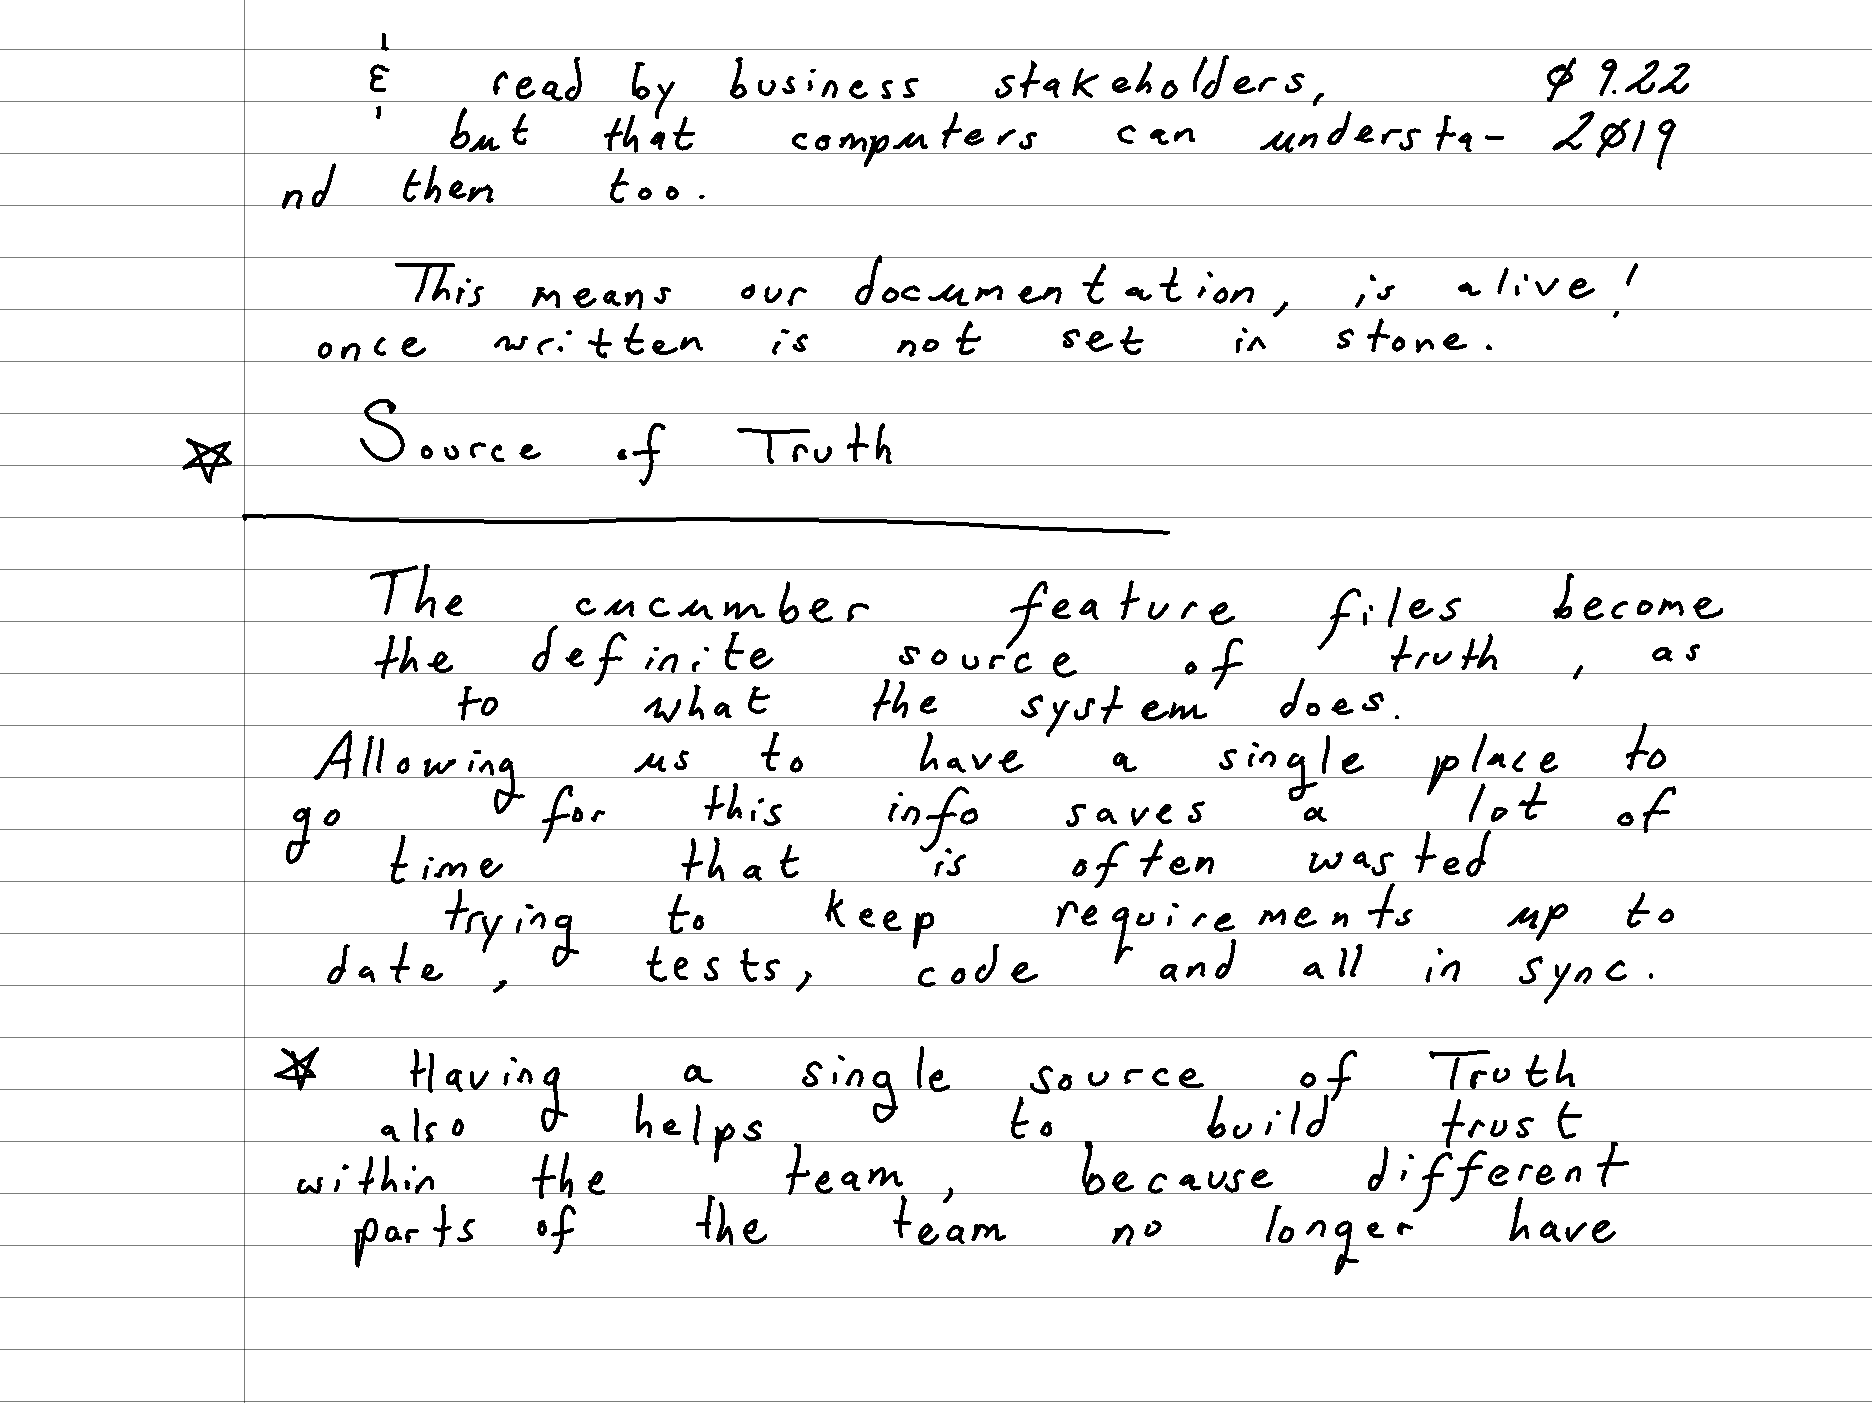 & read by business stakeholders, Ø9.22
but that computers can understa- 2Ø19
nd them too.
This means our documentation, is alive!
once written is not set in stone.
☆ Source of Truth
The cucumber feature files become
the definite source of truth, as
to what the system does.
Allowing us to have a single place to
go for this info saves a lot of
time that is often wasted
trying to keep requirements up to
date, tests, code and all in sync.
☆ Having a single source of Truth
also helps to build trust
within the team, because different
parts of the team no longer have